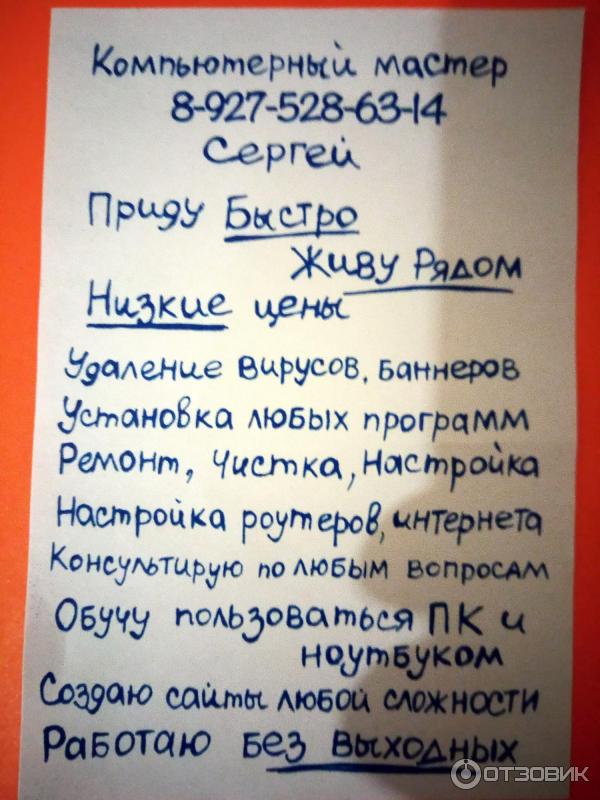 Компьютерный мастер
8-927-528-63-14
Сергей
Приду Быстро
Живу Рядом
Низкие цены
Удаление вирусов, баннеров
Установка любых программ
Ремонт, Чистка, Настройка
Настройка роутеров, интернета
Консультирую по любым вопросам
Обучу пользоваться ПК и
ноутбуком
Создаю сайты любой сложности
Работаю без выходных
ОТЗОВИК